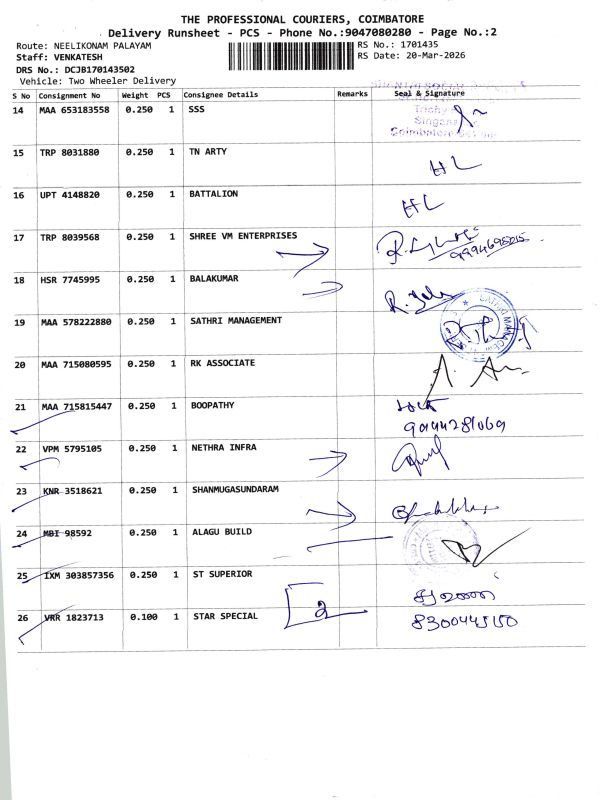 THE PROFESSIONAL COURIERS, COIMBATORE
Delivery Runsheet - PCS - Phone No.:9047080280 - Page No.:2
Route: NEELIKONAM PALAYAM RS No.: 1701435
Staff: VENKATESH RS Date: 20-Mar-2026
DRS No.: DCJB170143502
Vehicle: Two Wheeler Delivery
S No Consignment No Weight PCS Consignee Details Remarks Seal & Signature
14 MAA 653183558 0.250 1 SSS
Trichy
Singana
Coimbatore
15 TRP 8031880 0.250 1 TN ARTY HL
16 UPT 4148820 0.250 1 BATTALION HL
17 TRP 8039568 0.250 1 SHREE VM ENTERPRISES
18 HSR 7745995 0.250 1 BALAKUMAR
19 MAA 578222880 0.250 1 SATHRI MANAGEMENT
20 MAA 715080595 0.250 1 RK ASSOCIATE
21 MAA 715815447 0.250 1 BOOPATHY
22 VPM 5795105 0.250 1 NETHRA INFRA
23 KNR 3518621 0.250 1 SHANMUGASUNDARAM
24 MBI 98592 0.250 1 ALAGU BUILD
25 IXM 303857356 0.250 1 ST SUPERIOR
26 VRR 1823713 0.100 1 STAR SPECIAL 2